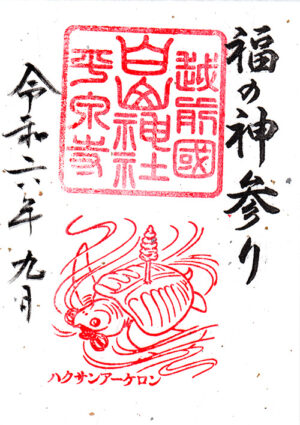 福の神参り
越前國
白山神社
平泉寺
令和六年 九月
ハクサンアーケロン